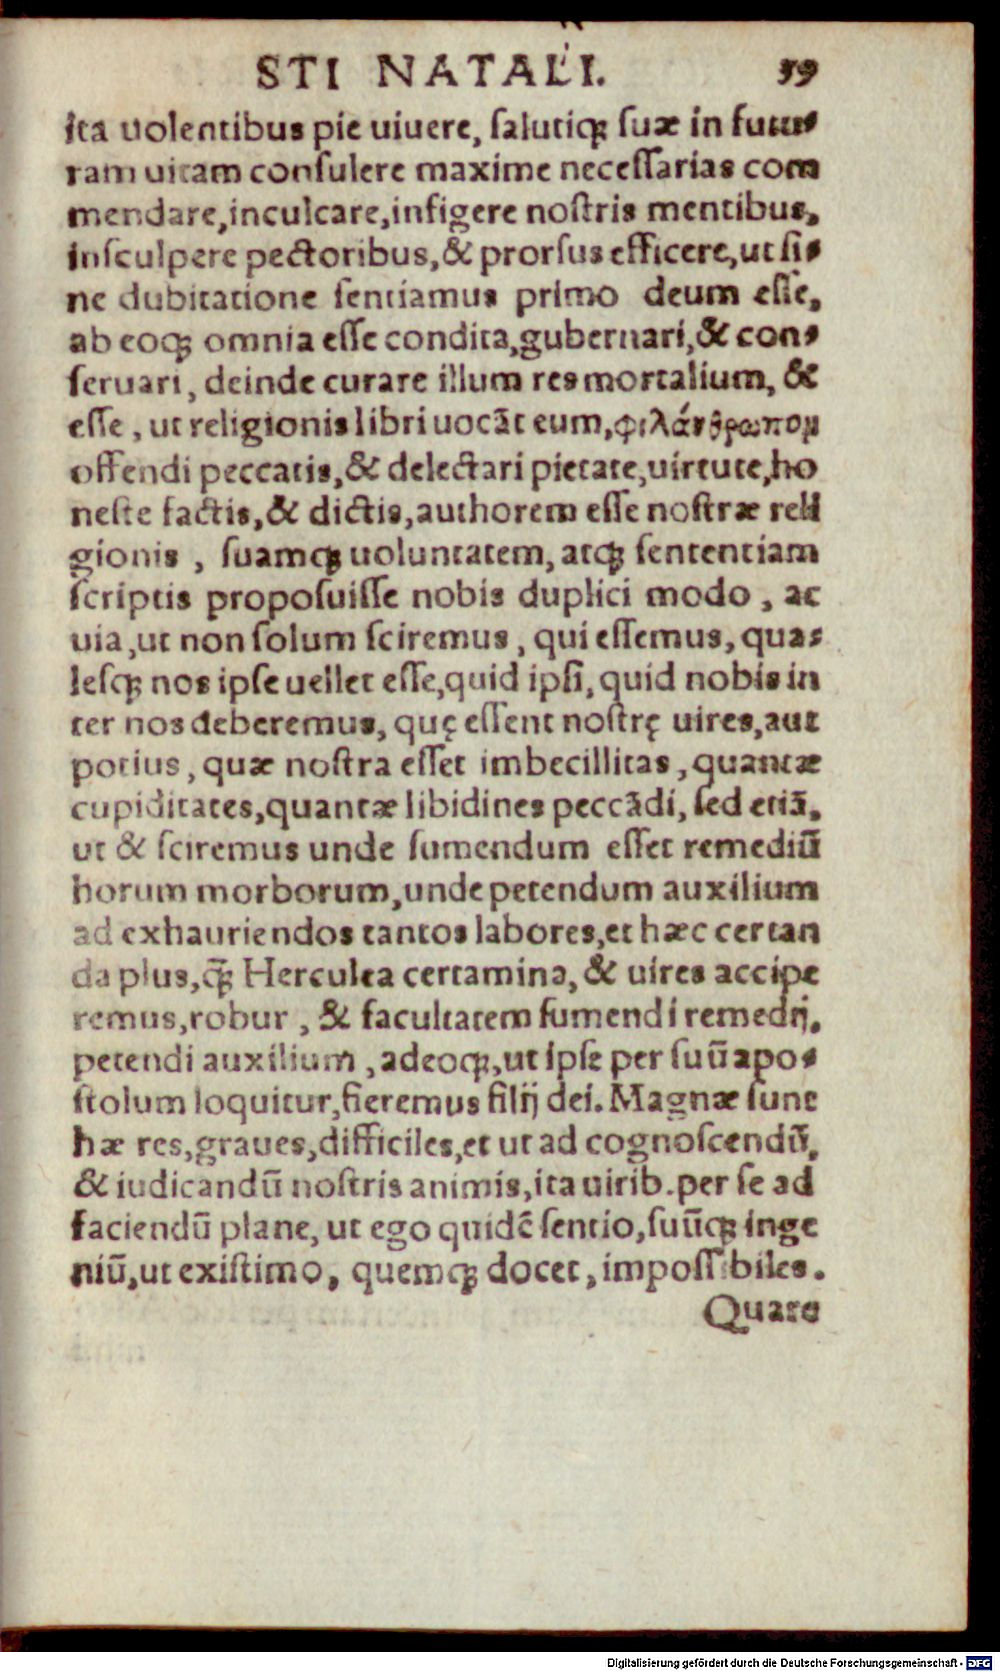 STI NATALI. 59
ita uolentibus pie uiuere, salutiqꝫ suæ in futu⸗
ram uitam consulere maxime necessarias com
mendare, inculcare, infigere nostris mentibus,
insculpere pectoribus, & prorsus efficere, ut si⸗
ne dubitatione sentiamus primo deum esse,
ab eoqꝫ omnia esse condita, gubernari, & con⸗
seruari, deinde curare illum res mortalium, &
esse, ut religionis libri uocāt eum, φιλάνθρωπομ
offendi peccatis, & delectari pietate, uirtute, ho
neste factis, & dictis, authorem esse nostræ reli
gionis, suamqꝫ uoluntatem, atqꝫ sententiam
scriptis proposuisse nobis duplici modo, ac
uia, ut non solum sciremus, qui essemus, qua⸗
lesqꝫ nos ipse uellet esse, quid ipsi, quid nobis in
ter nos deberemus, quę essent nostrę uires, aut
potius, quæ nostra esset imbecillitas, quantæ
cupiditates, quantæ libidines peccādi, sed etiā,
ut & sciremus unde sumendum esset remediū
horum morborum, unde petendum auxilium
ad exhauriendos tantos labores, et hæc certan
da plus, q̄ꝫ Herculea certamina, & uires accipe
remus, robur, & facultatem sumendi remedij,
petendi auxilium, adeoqꝫ, ut ipse per suū apo⸗
stolum loquitur, fieremus filij dei. Magnæ sunt
hæ res, graues, difficiles, et ut ad cognoscendū,
& iudicandū nostris animis, ita uirib. per se ad
faciendū plane, ut ego quidē sentio, suūqꝫ inge
niū, ut existimo, quemqꝫ docet, impossibiles.
Quare
Digitalisierung gefördert durch die Deutsche Forschungsgemeinschaft - DFG